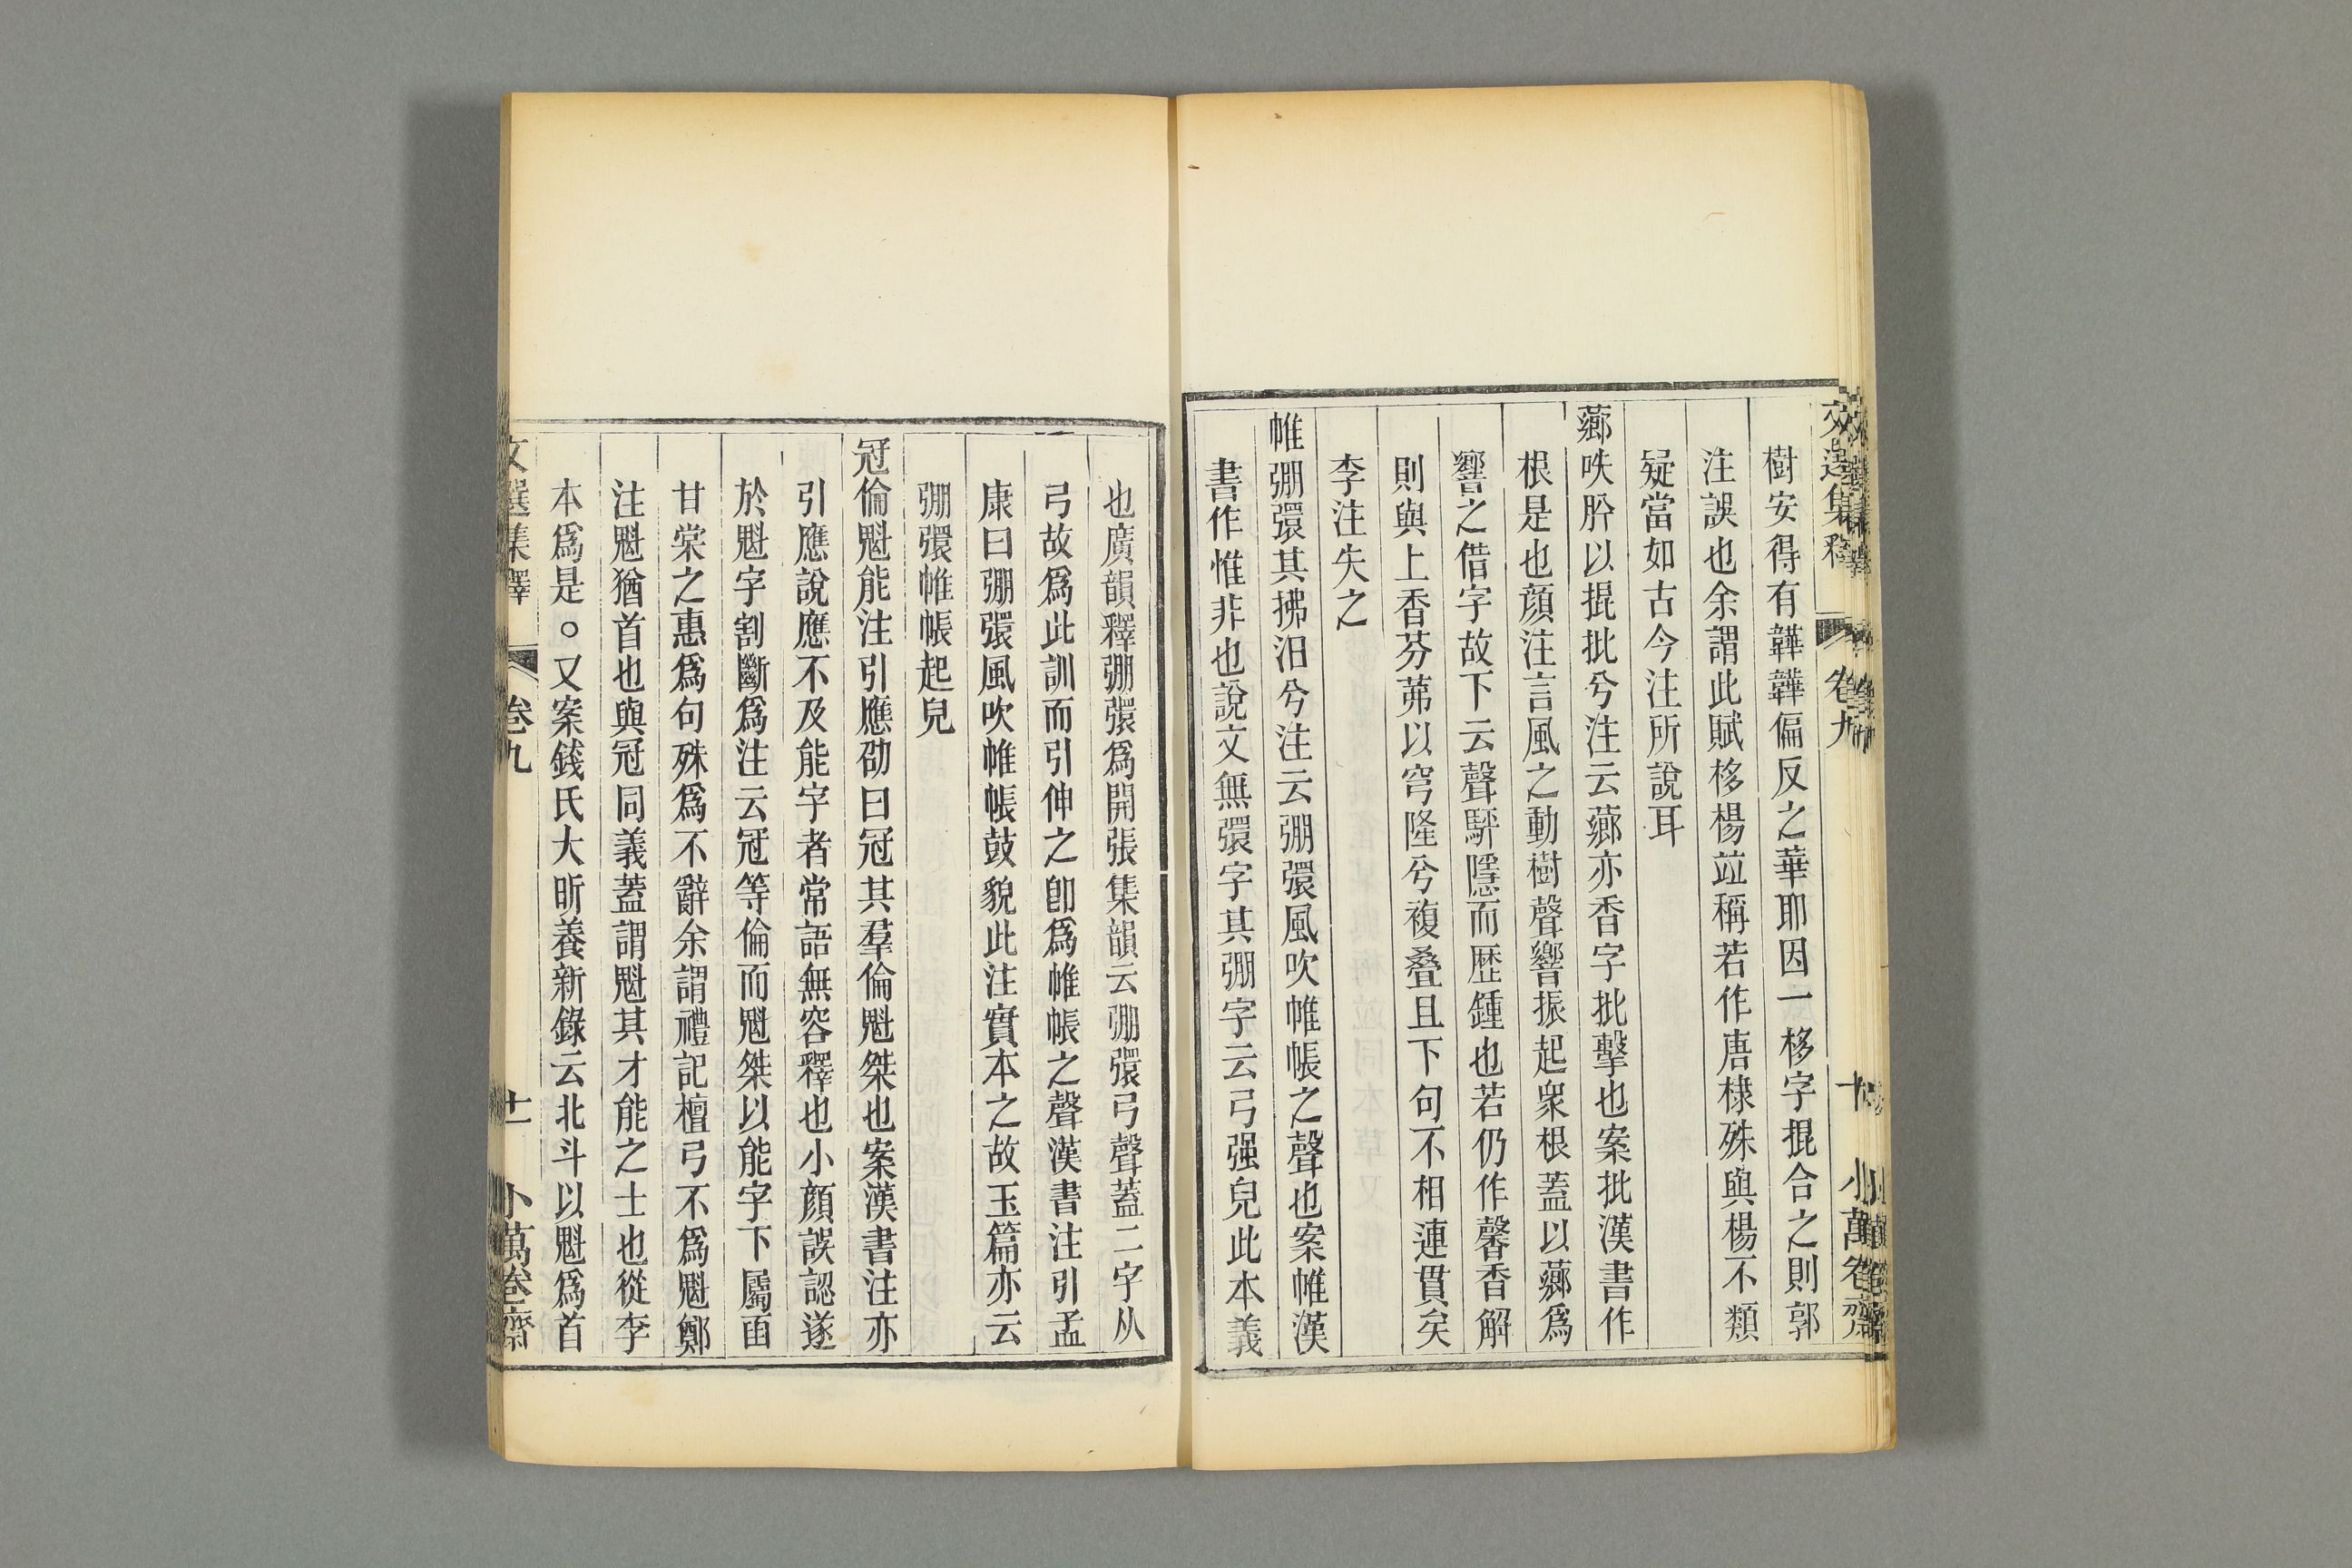 文選集釋 卷九 十 小萬卷齋
樹安得有韡韡偏反之華耶因一栘字掍合之則郭
注誤也余謂此賦栘楊竝稱若作唐棣殊與楊不類
疑當如古今注所說耳
薌呹肸以掍批兮注云薌亦香字批擊也案批漢書作
根是也顏注言風之動樹聲響振起衆根蓋以薌爲
響之借字故下云聲駍隱而歴鍾也若仍作馨香解
則與上香芬茀以穹隆兮複叠且下句不相連貫矣
李注失之
帷弸彋其拂汨兮注云弸彋風吹帷帳之聲也案帷漢
書作惟非也說文無彋字其弸字云弓强皃此本義
也廣韻釋弸彋爲開張集韻云弸彋弓聲蓋二字从
弓故爲此訓而引伸之卽爲帷帳之聲漢書注引孟
康曰弸彋風吹帷帳鼓貌此注實本之故玉篇亦云
弸彋帷帳起皃
冠倫魁能注引應劭曰冠其羣倫魁桀也案漢書注亦
引應說應不及能字者常語無容釋也小顏誤認遂
於魁字割斷爲注云冠等倫而魁桀以能字下屬函
甘棠之惠爲句殊爲不辭余謂禮記檀弓不爲魁鄭
注魁猶首也與冠同義蓋謂魁其才能之士也從李
本爲是。又案錢氏大昕養新錄云北斗以魁爲首
文選集釋 卷九 十一 小萬卷齋